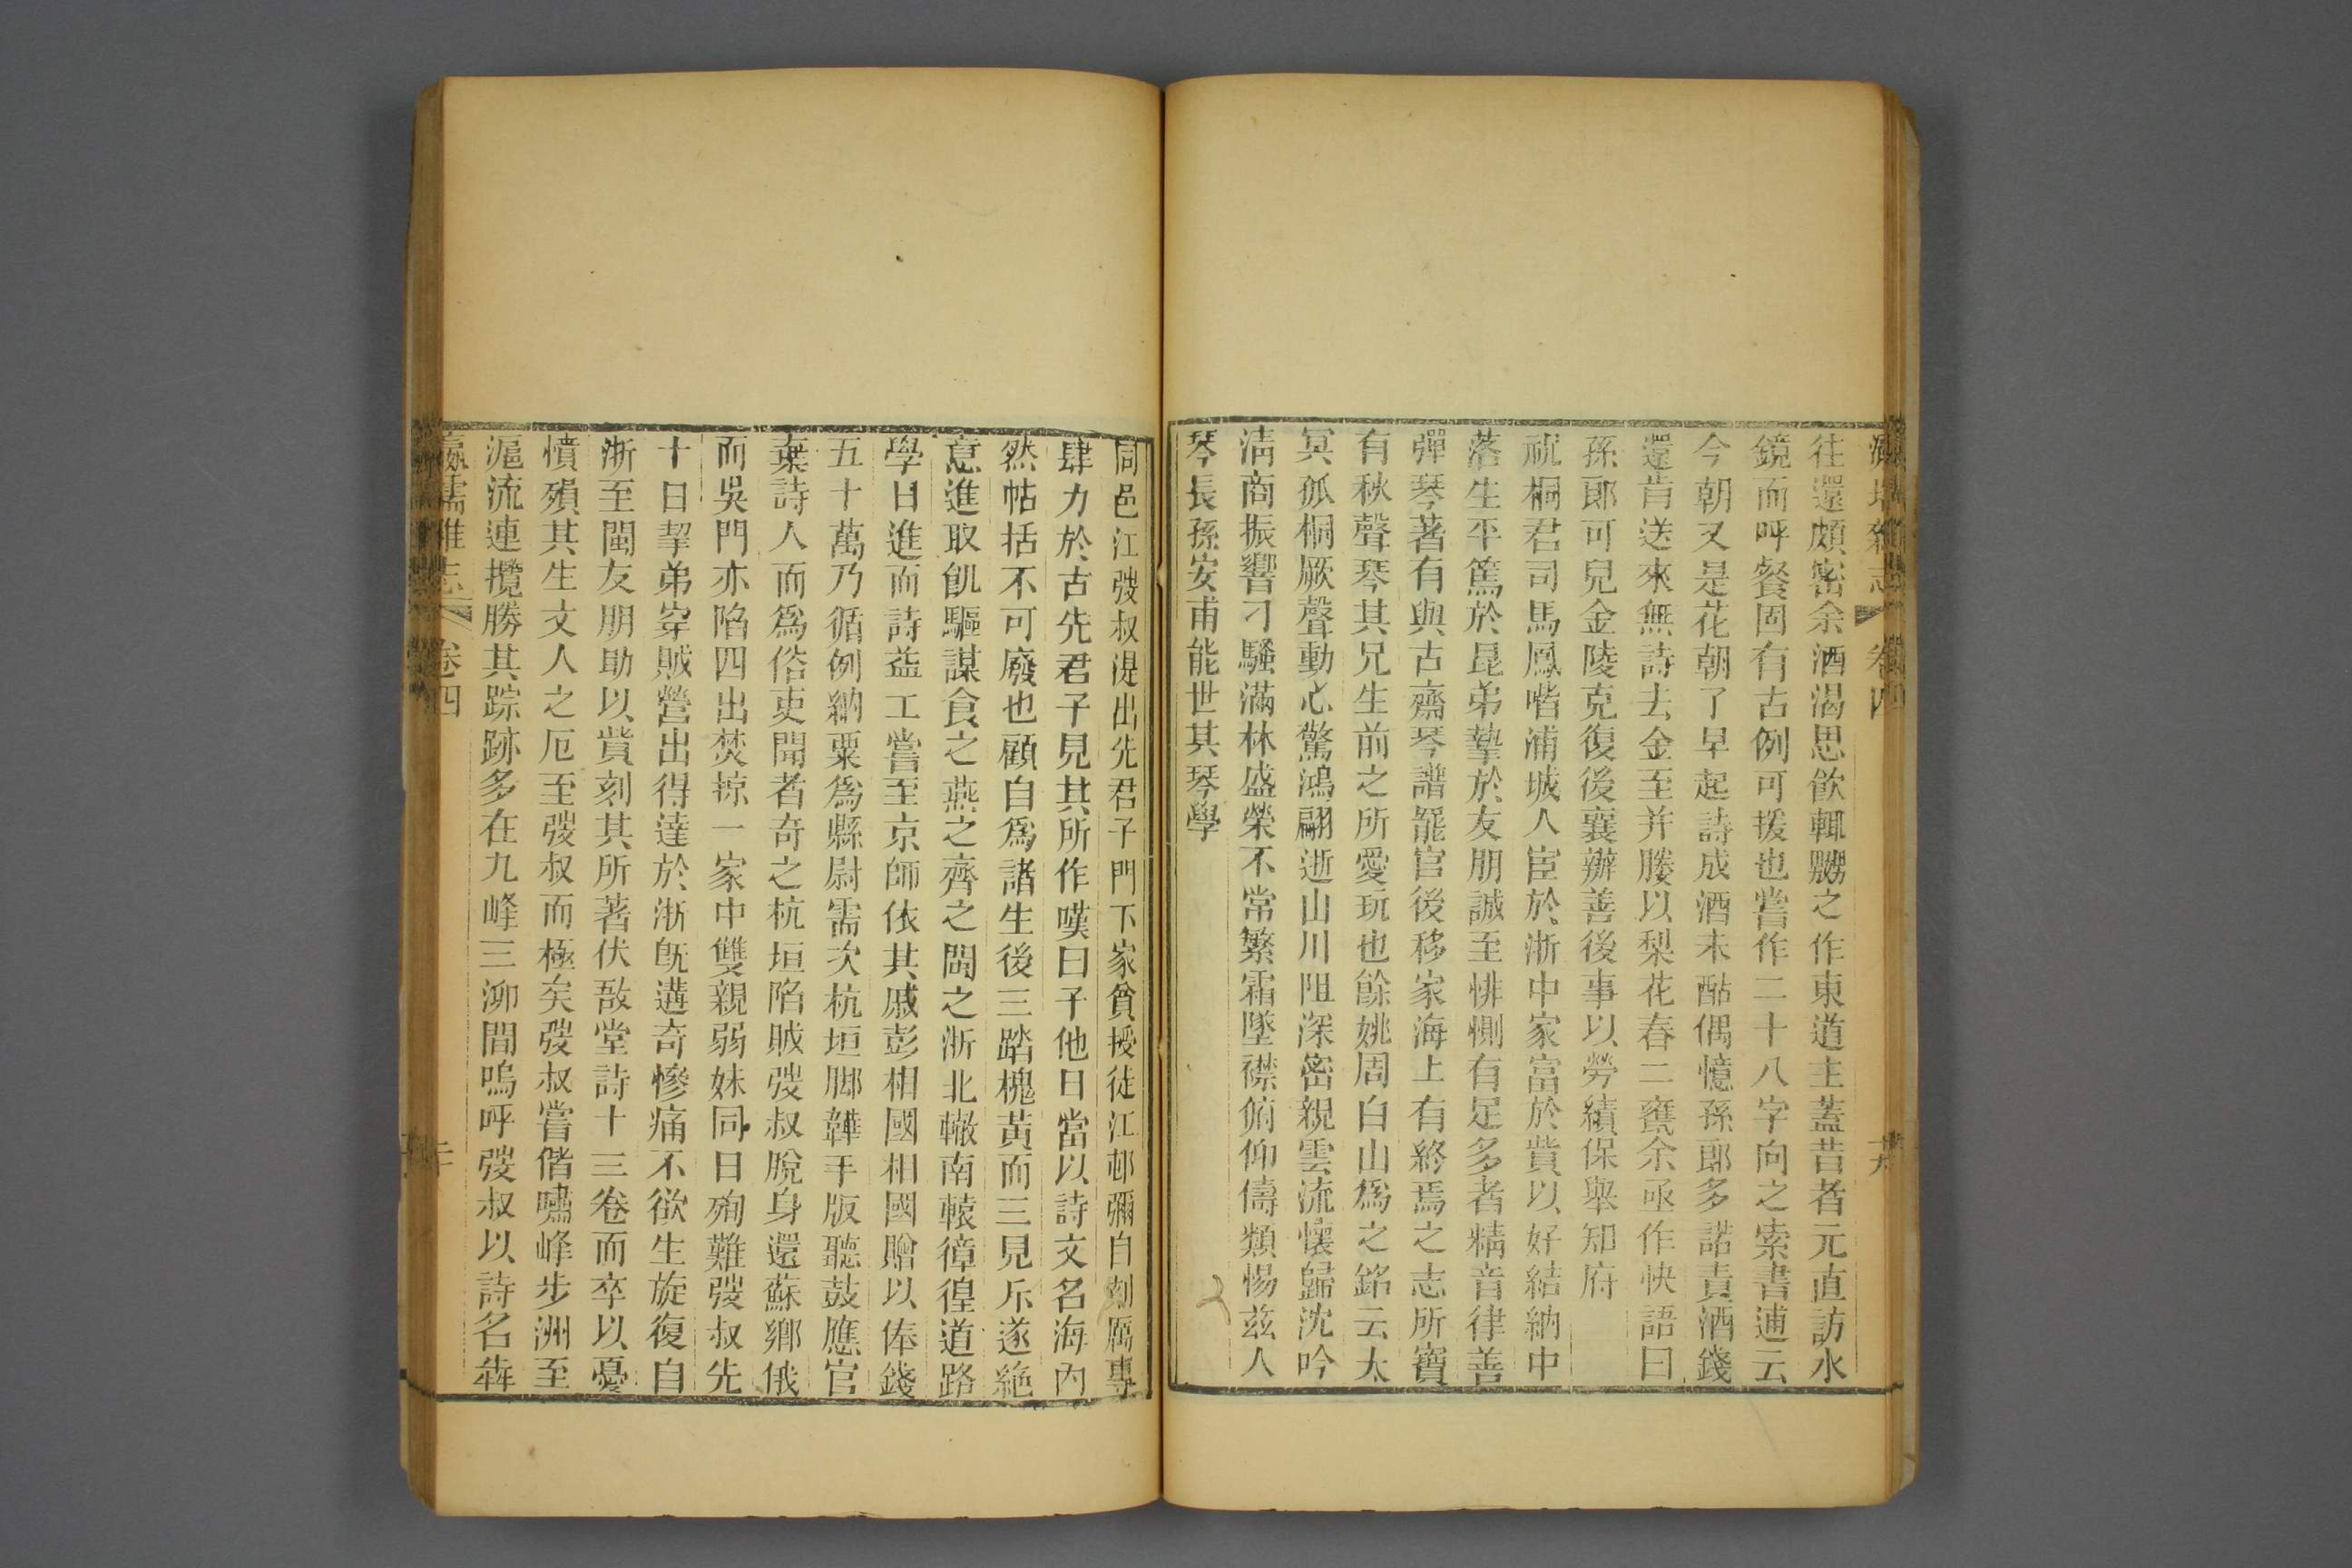 瀛壖雜志 卷四 十九
往還頗密余酒渴思飲輒嬲之作東道主蓋昔者元直訪水
鏡而呼餐固有古例可援也嘗作二十八字向之索書逋云
今朝又是花朝了早起詩成酒未酤偶憶孫郎多諾責酒錢
還肯送來無詩去金至并媵以梨花春二甕余亟作快語曰
孫郎可兒金陵克復後襄辦善後事以勞績保舉知府
祝桐君司馬鳳喈浦城人宦於浙中家富於貲以好結納中
落生平篤於昆弟摯於友朋誠至悱惻有足多者精音律善
彈琴著有與古齋琴譜罷官後移家海上有終焉之志所寶
有秋聲琴其兄生前之所愛玩也餘姚周白山為之銘云太
冥孤桐厥聲動心驚鴻翩逝山川阻深密親雲流懷歸沈吟
清商振響刁騷滿林盛榮不常繁霜墜襟俯仰儔類惕茲人
琴長孫安甫能世其琴學
同邑江弢叔湜出先君子門下家貧授徒江邨彌自刻厲專
肆力於古先君子見其所作嘆曰子他日當以詩文名海內
然帖括不可廢也顧自為諸生後三踏槐黃而三見斥遂絶
意進取飢驅謀食之燕之齊之閩之浙北轍南轅徬徨道路
學日進而詩益工嘗至京師依其戚彭相國相國贈以俸錢
五十萬乃循例納粟為縣尉需次杭垣脚韡手版聽鼓應官
棄詩人而為俗吏聞者奇之杭垣陷賊弢叔脫身還蘇鄉俄
而吳門亦陷四出焚掠一家中雙親弱妹同日殉難弢叔先
十日挈弟穿賊營出得達於浙旣遘奇慘痛不欲生旋復自
浙至閩友朋助以貲刻其所著伏敔堂詩十三卷而卒以憂
憤殞其生文人之厄至弢叔而極矣弢叔嘗偕嘯峰步洲至
滬流連攬勝其踪跡多在九峰三泖間嗚呼弢叔以詩名犇
瀛壖雜志 卷四 二十